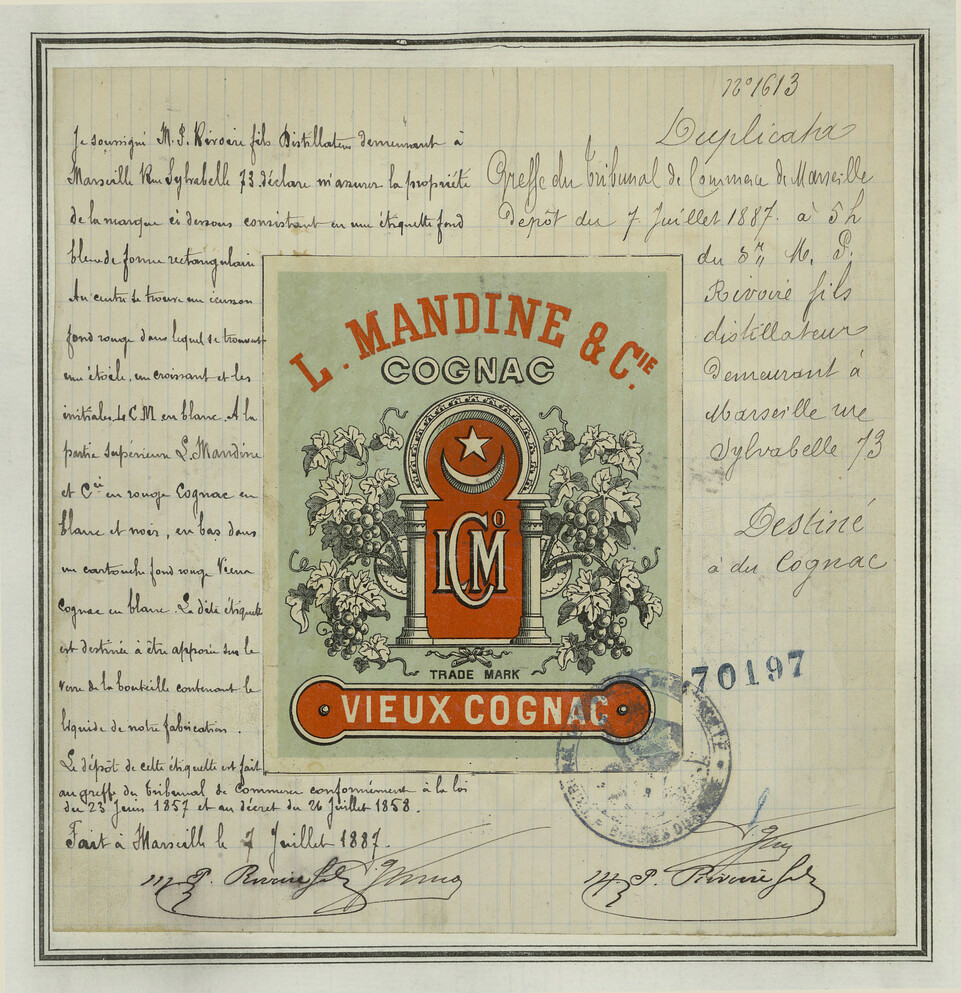 Nº 1613
Duplicata
Greffe du Tribunal de Commerce de Marseille
Depôt du 7 Juillet 1887. à 5 h
du Sr M. P.
Rivoire fils
distillateur
demeurant à
Marseille rue
Sylvabelle 73
Destiné
à du Cognac
Je soussigné M. P. Rivoire fils Distillateur demeurant à
Marseille Rue Sylvabelle 73 déclare m'assurer la propriété
de la marque ci dessous consistant en une étiquette fond
bleu de forme rectangulaire
Au centre se trouve un écusson
fond rouge dans lequel se trouvent
une étoile, un croissant et les
initiales L C M en blanc. A la
partie supérieure L. Mandine
et Cie en rouge Cognac en
blanc et noir, en bas dans
un cartouche fond rouge Vieux
Cognac en blanc. La dite étiquette
est destinée à être apposée sur le
verre de la bouteille contenant le
liquide de notre fabrication.
Le dépôt de cette étiquette est fait
au greffe du Tribunal de Commerce conformément à la loi
du 23 Juin 1857 et au décret du 26 Juillet 1858.
Fait à Marseille le 7 Juillet 1887.
M. P. Rivoire fils
M. P. Rivoire fils
L. MANDINE & CIE.
COGNAC
LCMº
TRADE MARK
VIEUX COGNAC
70197